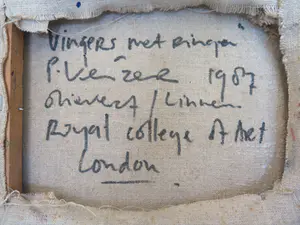 Vingers met ringen"
P. Keizer 1987
olieverf / Linnen
Royal college of Art
London